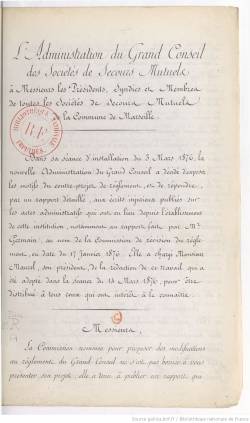 L'Administration du Grand Conseil
des Sociétés de Secours Mutuels
à Messieurs les Présidents, Syndics et Membres
de toutes les Sociétés de Secours Mutuels
de la Commune de Marseille.
Dans sa séance d'installation du 3 Mars 1876, la
nouvelle Administration du Grand Conseil a décidé d'exposer
les motifs du contre-projet de règlement, et de répondre,
par un rapport détaillé, aux écrits injurieux publiés sur
les actes administratifs qui ont eu lieu depuis l'établissement
de cette institution, notamment au rapport fait par Mr
Germain, au nom de la Commission de révision du règle-
ment, en date du 17 Janvier 1876. Elle a chargé Monsieur
Maurel, son président, de la rédaction de ce travail qui a
été adopté dans la séance du 13 Mars 1876, pour être
distribué à tous ceux qui ont intérêt à le connaître.
Messieurs,
La Commission nommée pour proposer des modifications
au règlement du Grand Conseil ne s'est pas bornée à vous
présenter son projet; elle a tenu à publier un rapport qui
Source gallica.bnf.fr / Bibliothèque nationale de France